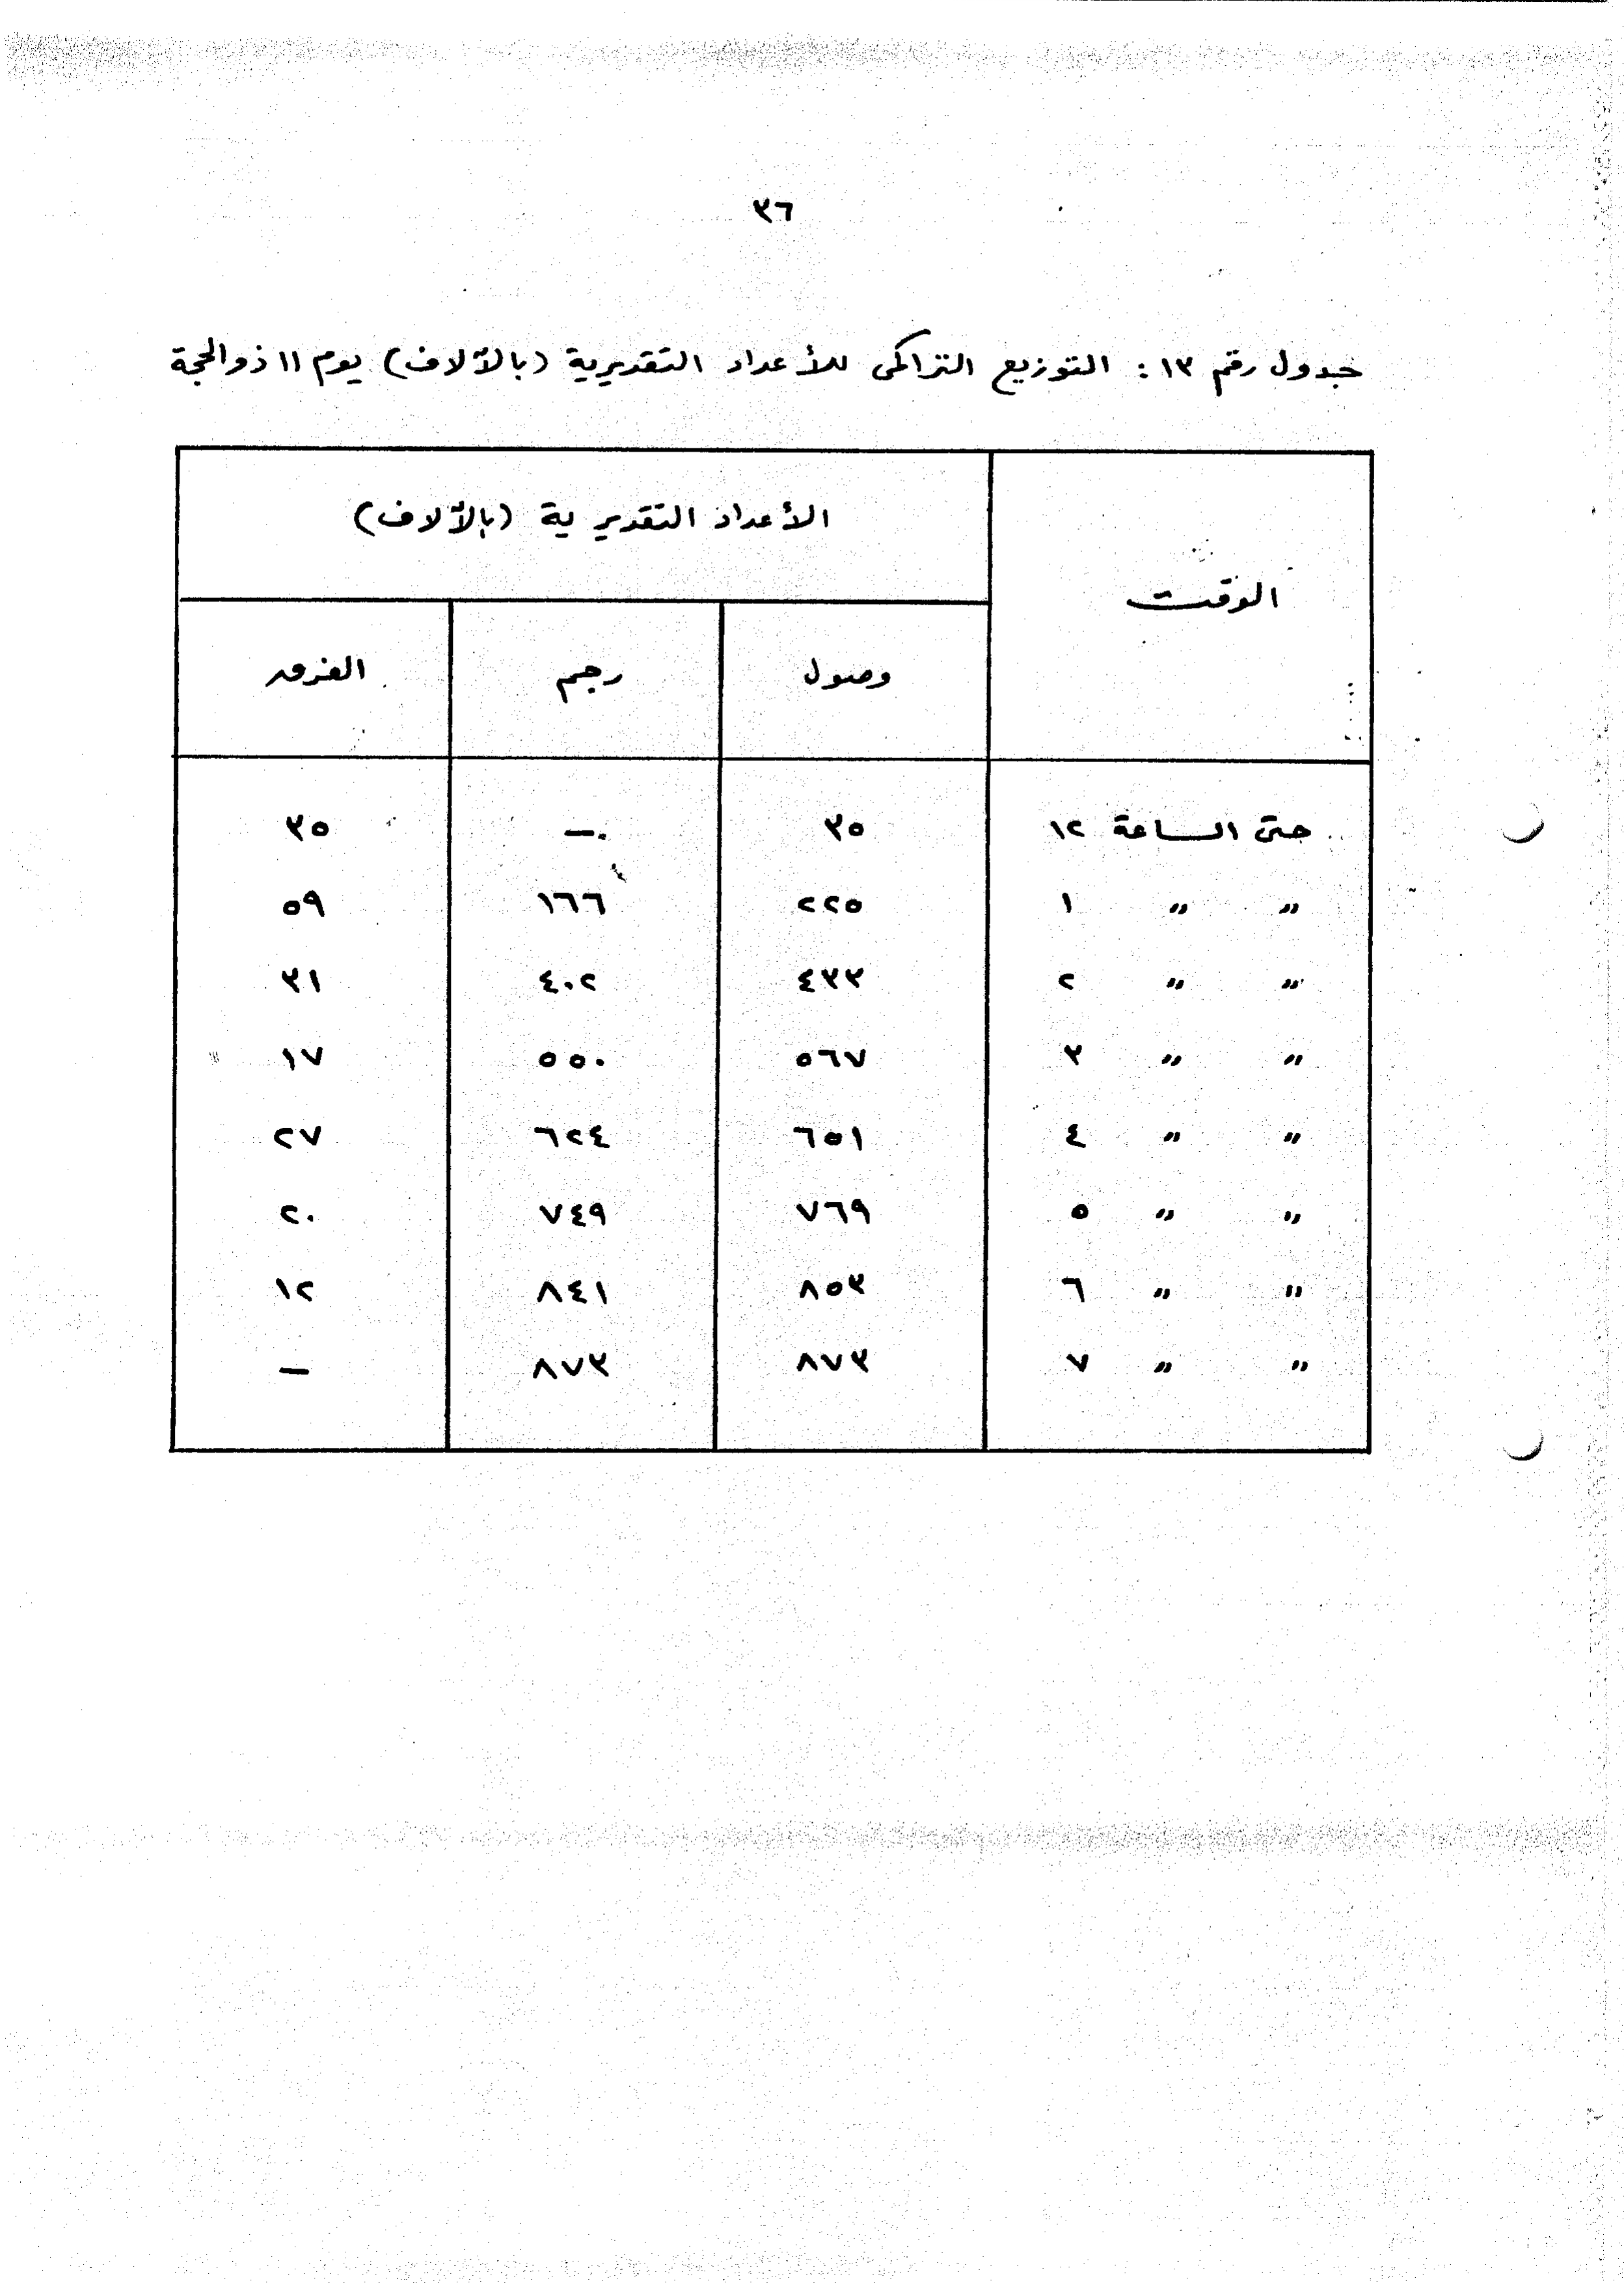 ٣٦
جدول رقم ١٣ : التوزيع التراكمى للأعداد التقديرية (بالآلاف) يوم ١١ ذو الحجة
الوقت الأعداد التقديرية (بالآلاف)
وصول رجم الفرق
حتى الساعة ١٢ ٣٥ — ٣٥
" " ١ ٢٢٥ ١٦٦ ٥٩
" " ٢ ٤٣٣ ٤٠٢ ٣١
" " ٣ ٥٦٧ ٥٥٠ ١٧
" " ٤ ٦٥١ ٦٢٤ ٢٧
" " ٥ ٧٦٩ ٧٤٩ ٢٠
" " ٦ ٨٥٣ ٨٤١ ١٢
" " ٧ ٨٧٣ ٨٧٣ —